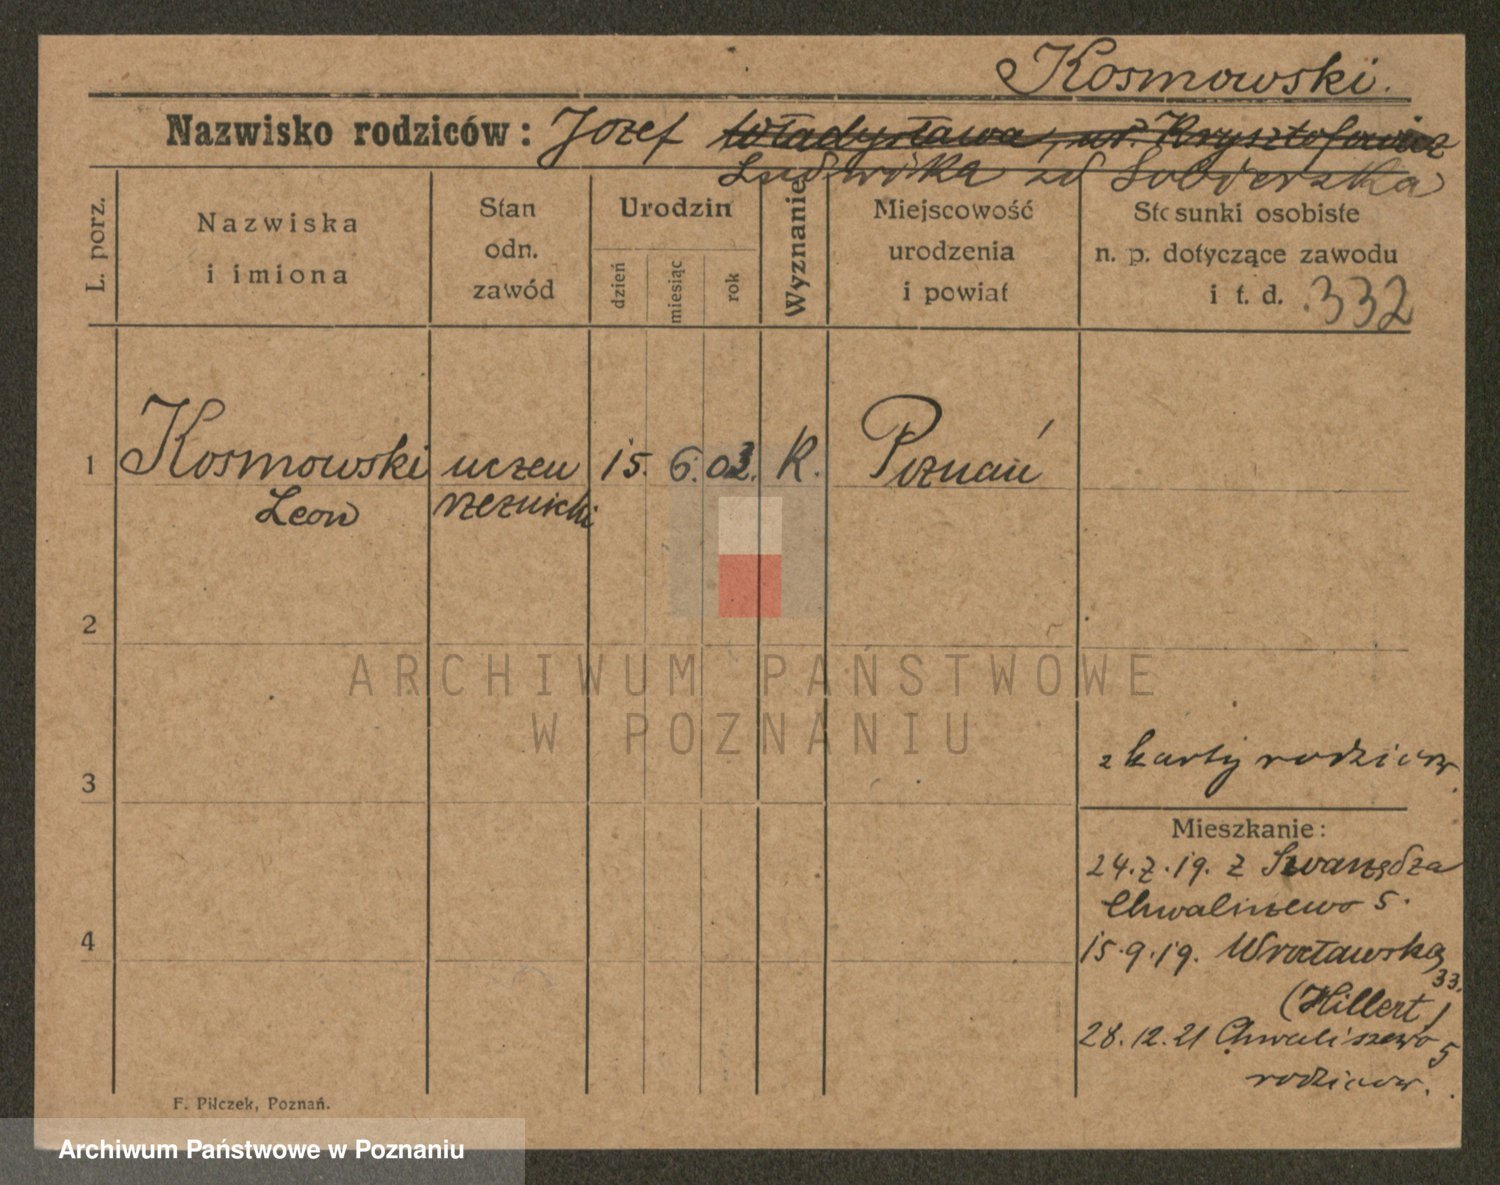 Kosmowski.
Nazwisko rodziców: Jozef Władysława, ur. Krysztofowicz
Ludwika zd
L. porz.
Nazwiska
i imiona
Stan
odn.
zawód
Urodzin
dzień
miesiąc
rok
Wyznanie
Miejscowość
urodzenia
i powiat
Stosunki osobiste
n. p. dotyczące zawodu
i t. d. 332
1 Kosmowski uczeń 15. 6. 03. K. Poznań
Leon rzeźnicki
2
ARCHIWUM PAŃSTWOWE
W POZNANIU
3
z karty rodziców.
Mieszkanie:
24.7.19. z Swarzędza
Chwaliszewo 5.
4
15.9.19. Wrocławska
33.
(Hillert)
28.12.21 Chwaliszewo 5
rodziców.
F. Pilczek, Poznań.
Archiwum Państwowe w Poznaniu